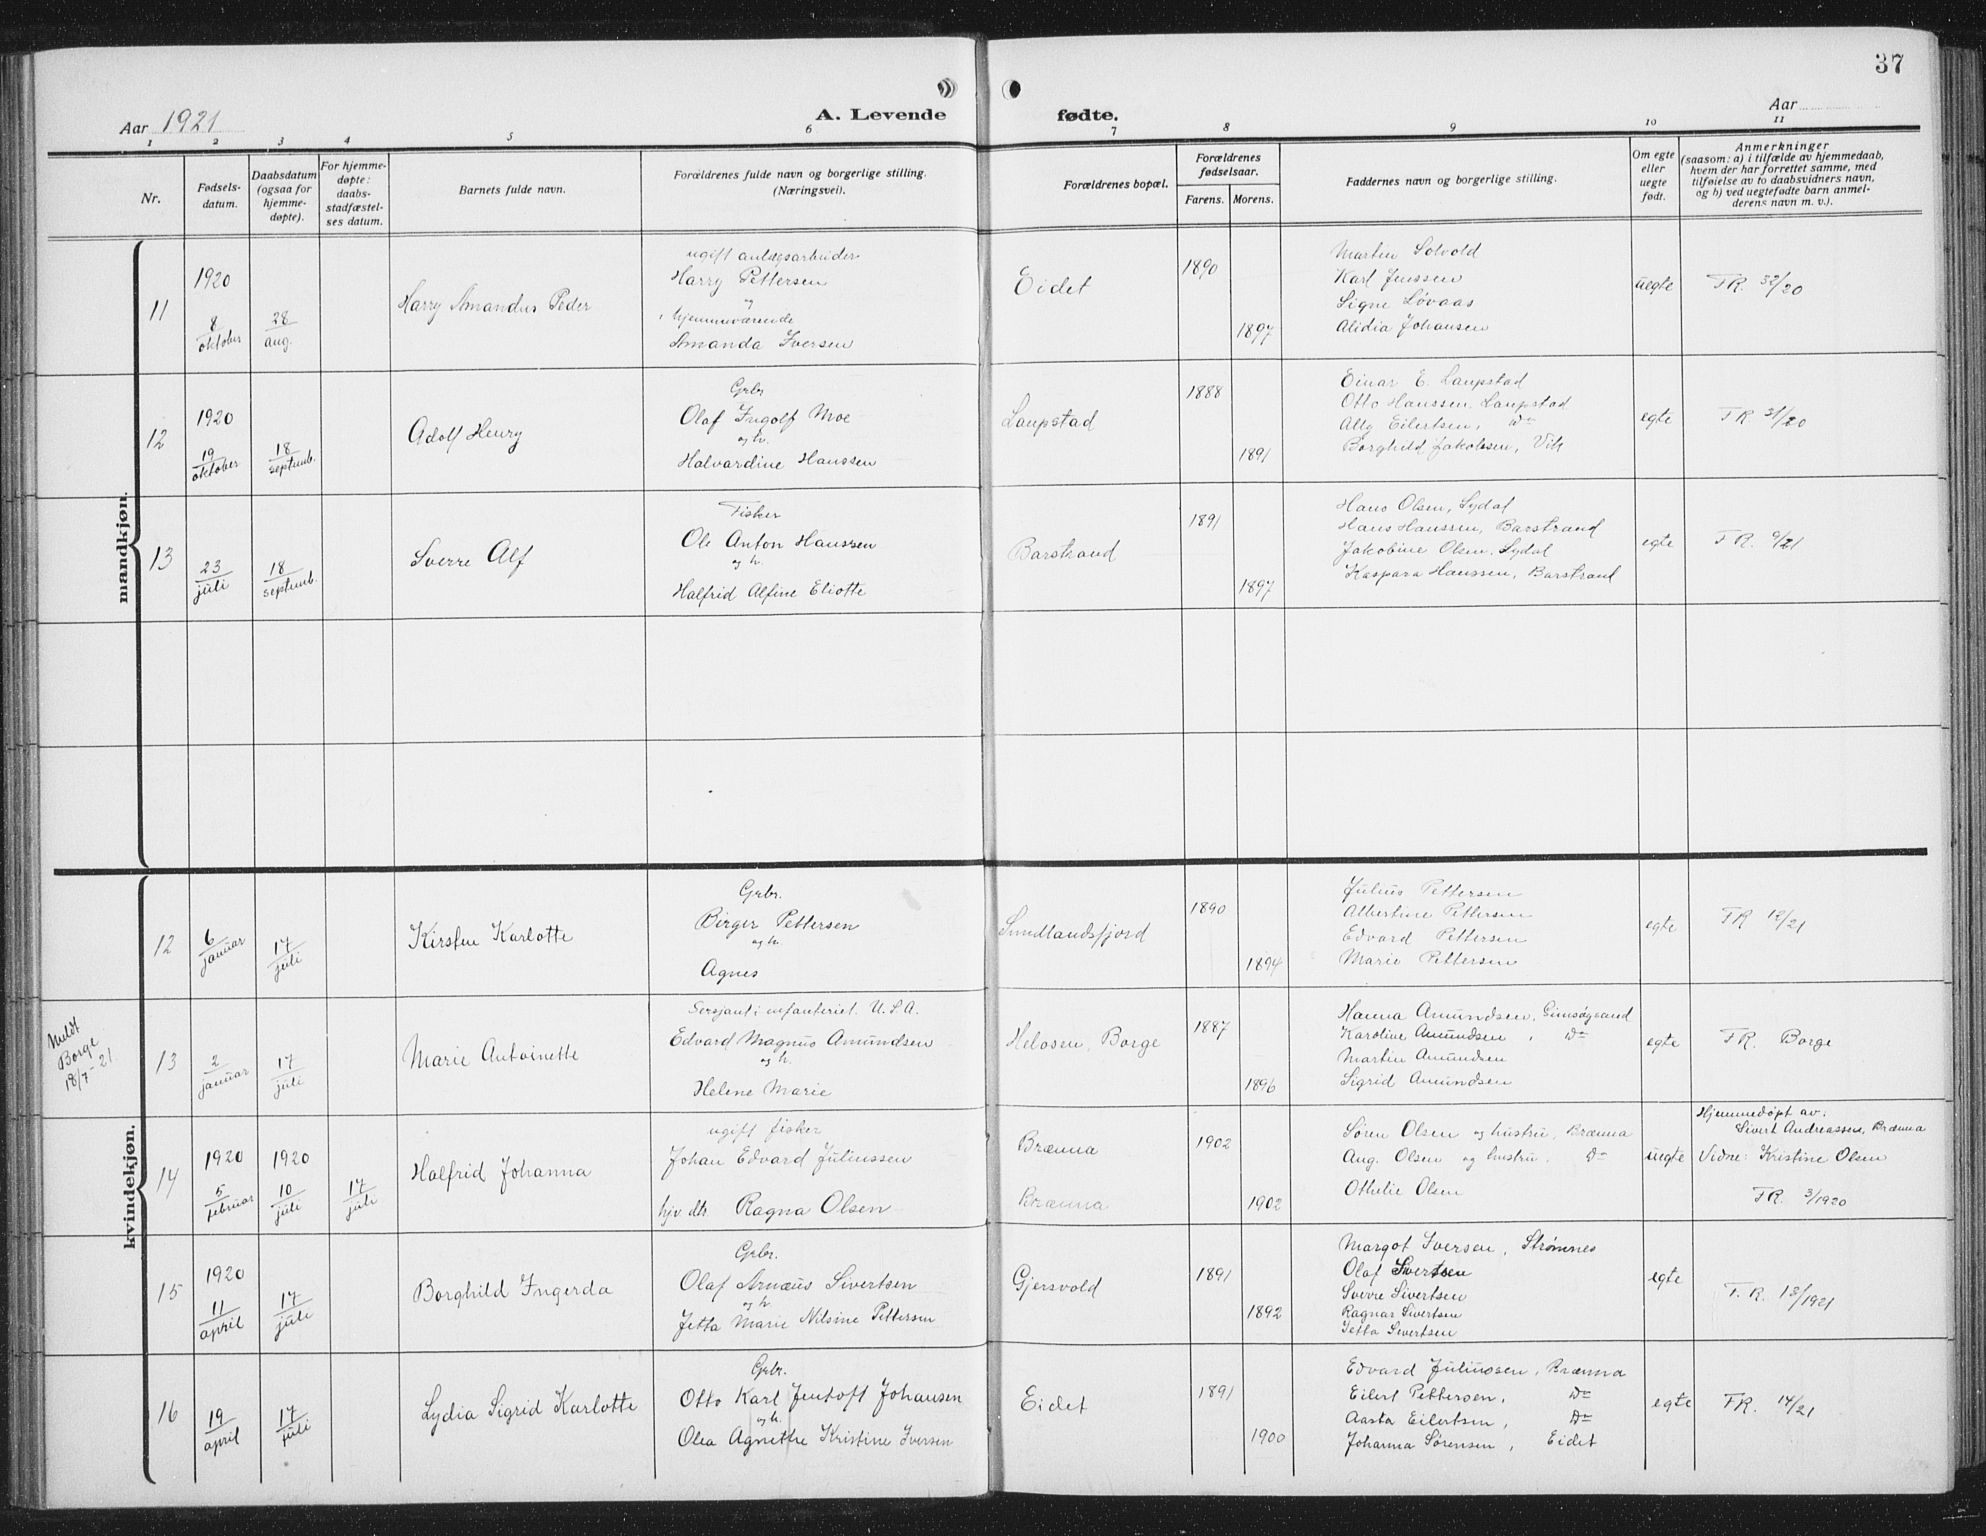 37
Aar 1921
A. Levende fødte.
Aar
1 2 3 4 5 6 7 8 9 10 11
Nr.
Fødsels-
datum.
Daabsdatum
(ogsaa for
hjemme-
døpte).
For hjemme-
døpte:
daabs-
stadfæstel-
ses datum.
Barnets fulde navn.
Forældrenes fulde navn og borgerlige stilling.
(Næringsvei).
Forældrenes bopæl.
Forældrenes
fødselsaar.
Farens. Morens.
Faddernes navn og borgerlige stilling.
Om egte
eller
uegte
født.
Anmerkninger
(saasom: a) i tilfælde av hjemmedaab,
hvem der har forrettet samme, med
tilføielse av to daabsvidners navn,
og b) ved uegtefødte barn anmel-
derens navn m. v.).
mandkjøn.
11
1920
8
oktober
28
aug.
Harry Amandus Peder
ugift anlægsarbeider
Harry Pettersen
og
hjemmeværende
Amanda Iversen
Eidet
1890
1897
Martin Solvold
Karl Jenssen
Signe Løvaas
Alidia Johansen
uegte
F.R. 32/20
12
1920
19
oktober
18
septemb.
Adolf Henry
Grbr
Olaf Ingolf Moe
og h.
Halvardine Hanssen
Laupstad
1888
1891
Einar E. Laupstad
Otto Hanssen, Laupstad
Ally Eilertsen, Do
Borghild Jakobsen, Vik
egte
F.R. 31/20
13
23
juli
18
septemb.
Sverre Alf
Fisker
Ole Anton Hanssen
og h.
Halfrid Alfine Eliotte
Barstrand
1891
1897
Hans Olsen, Sydal
Hans Hanssen, Barstrand
Jakobine Olsen, Sydal
Kaspara Hanssen, Barstrand
egte
F.R. 9/21
kvindekjøn.
12
6
januar
17
juli
Kirsten Karlotte
Grbr.
Birger Pettersen
og h.
Agnes
Sundlandsfjord
1890
1894
Julius Pettersen
Albertine Pettersen
Edvard Pettersen
Marie Pettersen
egte
F.R. 12/21
Meldt
Borge
18/7-21
13
2
januar
17
juli
Marie Antoinette
Sersjant i infanteriet. U.S.A.
Edvard Magnus Amundsen
og h.
Helene Marie
Helosen, Borge
1887
1896
Hanna Amundsen, Gimsøysand
Karoline Amundsen, Do
Martin Amundsen
Sigrid Amundsen
egte
F.R. Borge
14
1920
5
februar
1920
10
juli
17
juli
Halfrid Johanna
ugift fisker
Johan Edvard Juliussen
hjv. dtr. Ragna Olsen
Brænna
Brænna
1902
1902
Søren Olsen og hustru, Brænna
Aug. Olsen og hustru, Do
Othelie Olsen
uegte
Hjemmedøpt av:
Sivert Andreassen, Brænna
Vidne: Kristine Olsen
F.R. 3/1920
15
1920
11
april
17
juli
Borghild Ingerda
Grbr.
Olaf Arnæus Sivertsen
og h.
Jetta Marie Nilsine Pettersen
Gjersvold
1891
1892
Margot Iversen, Strømnes
Olaf Sivertsen
Sverre Sivertsen
Ragnar Sivertsen
Jetta Sivertsen
egte
F.R. 13/1921
16
19
april
17
juli
Lydia Sigrid Karlotte
Grbr.
Otto Karl Jentoft Johansen
og h.
Olea Agnethe Kristine Iversen
Eidet
1891
1900
Edvard Juliussen, Brænna
Eilert Pettersen, Do
Aasta Eilertsen, Do
Johanna Sørensen, Eidet
egte
F.R. 14/21